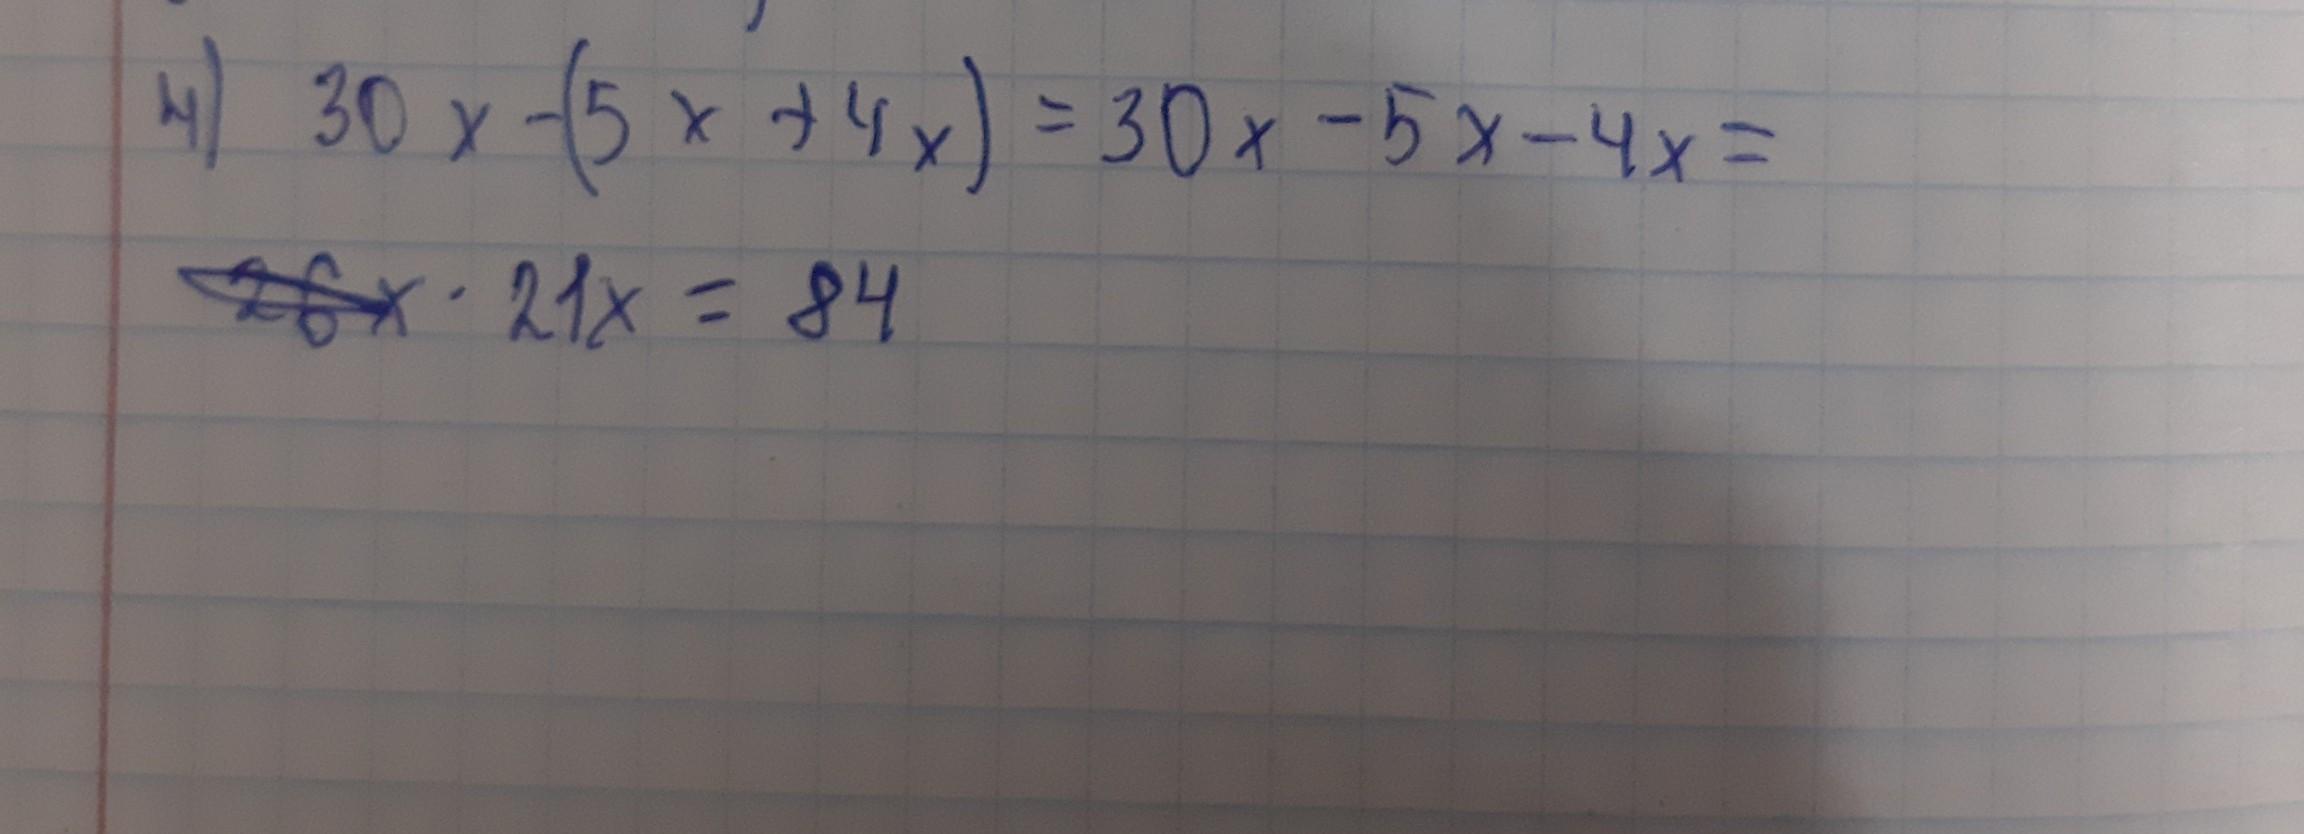 4) 30x-(5x+4x)=30x-5x-4x=
21x = 84